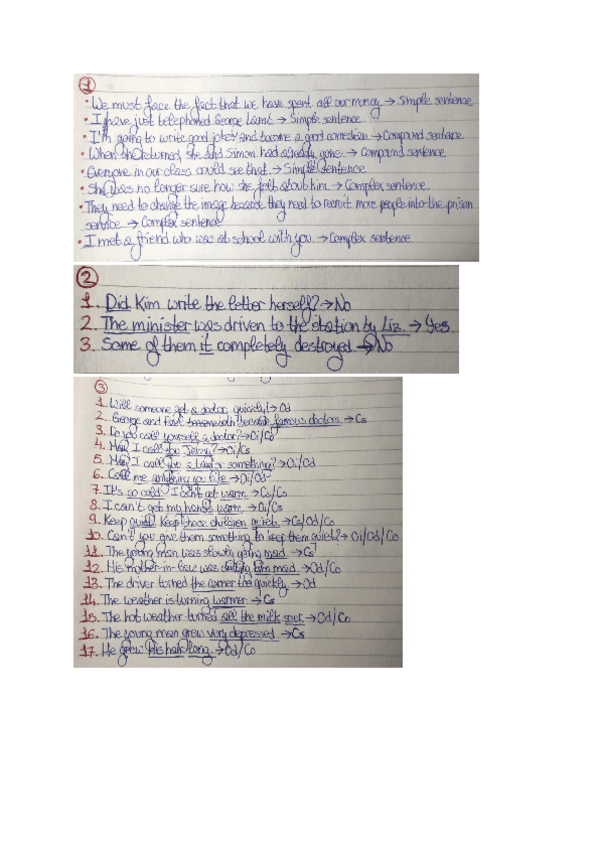 1
• We must face the fact that we have spent all our money → Simple sentence
• I have just telephoned George Lamt → Simple sentence
• I'm going to write good jokes and become a good comedian → Compound sentence
• When she returned, she and Simon had already gone → Compound sentence
• Everyone in our class could see that → Simple sentence
• She was no longer sure how she felt about him. → Complex sentence.
• They need to change the image because they need to recruit more people into the prison
service → Complex sentence
• I met a friend who was at school with you. → Complex sentence
2
1. Did Kim write the letter herself? → No
2. The minister was driven to the station by Liz. → Yes
3. Some of them it completely destroyed → No
3
1. Will someone get a doctor, quickly! → Od
2. George and both became famous doctors. → Cs
3. Do you call yourself a doctor? → Oi/Co
4. May I call you Jenny? → Oi/Cs
5. May I call you a taxi or something? → Oi/Od
6. Call me anything you like → Oi/Od
7. It's so cold. I can't get warm. → Cs/Co
8. I can't get my hands warm. → Oi/Cs
9. Keep quiet! Keep those children quiet. → Cs/Od/Co
10. Can't you give them something to keep them quiet? → Oi/Od/Co
11. The young man was slowly going mad. → Cs
12. His mother-in-law was driving him mad. → Od/Co
13. The driver turned the corner too quickly. → Od
14. The weather is turning warmer → Cs
15. The hot weather turned all the milk sour. → Od/Co
16. The young man grew very depressed → Cs
17. He grew his hair long. → Od/Co